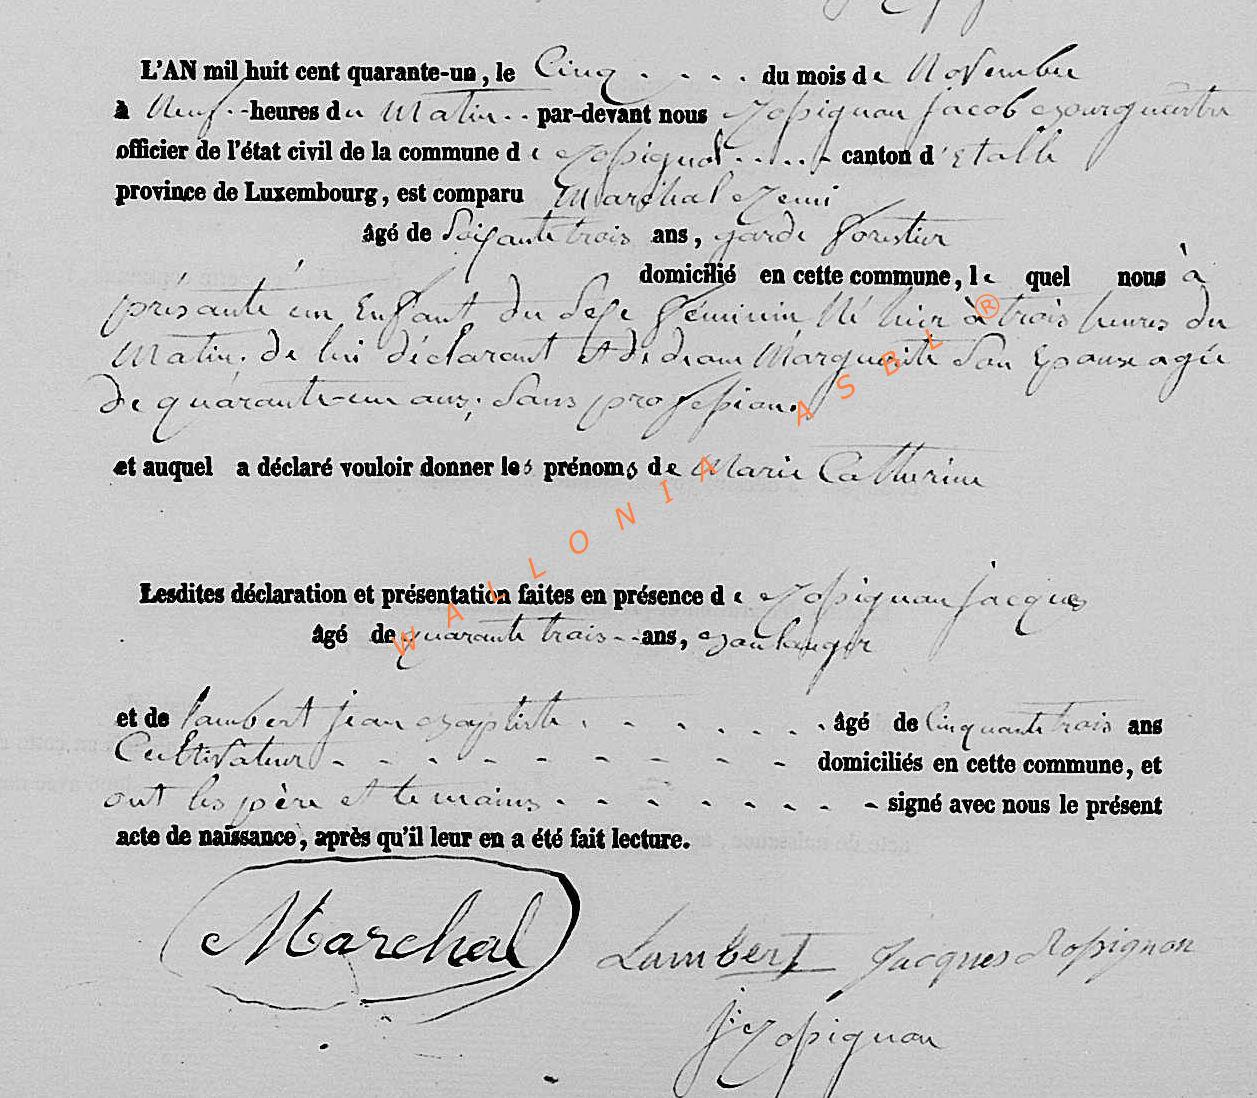 L'AN mil huit cent quarante-un, le Cinq . . . . du mois de Novembre
à Neuf .. heures du Matin .. par-devant nous Rossignon jacob Bourgmestre
officier de l'état civil de la commune de Rossignol . . . . . canton d'Etalle
province de Luxembourg, est comparu Maréchal Remi
âgé de Soixante trois ans, garde forestier
domicilié en cette commune, le quel nous à
présenté un Enfant du Sexe féminin Né hier à trois heures du
Matin, de lui déclarant et de Marguerite Son Epouse agée
de quarante-un ans, Sans profession.
et auquel a déclaré vouloir donner les prénoms de Marie Catherine
Lesdites déclaration et présentation faites en présence de Rossignon jacques
âgé de quarante trois .. ans, Boulanger
et de lambert jean Baptiste . . . . . . . âgé de Cinquante trois ans
Cultivateur - - - - - - - - - domiciliés en cette commune, et
ont les père et temoins - - - - - - - signé avec nous le présent
acte de naissance, après qu'il leur en a été fait lecture.
Marchal
Lambert Jacques Rossignon
j Rossignon
WALLONIA ASBL ®